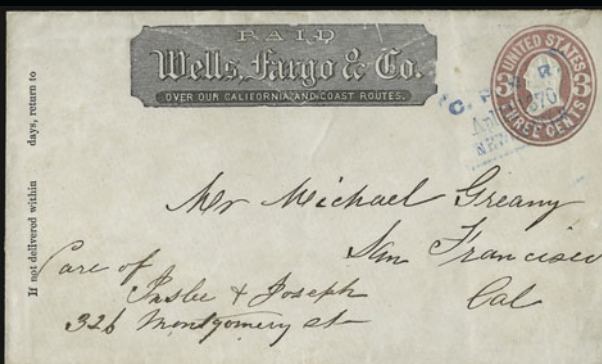 PAID
Wells, Fargo & Co.
OVER OUR CALIFORNIA AND COAST ROUTES.
UNITED STATES
3 3
THREE CENTS
C. P. R. R.
1870
If not delivered within days, return to
Mr Michael Greany
San Francisco
Cal
Care of
& Joseph
326 Montgomery st